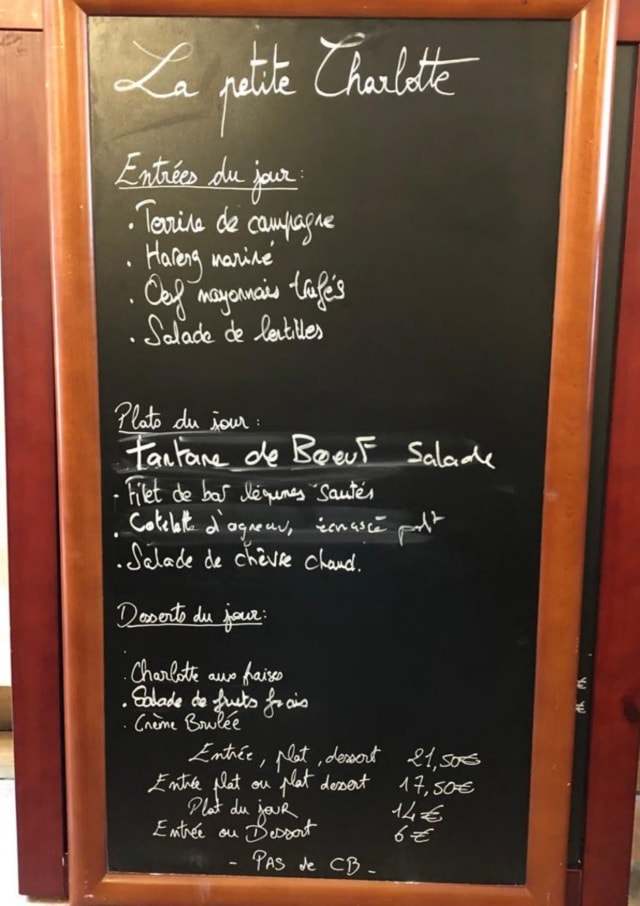 La petite Charlotte
Entrées du jour :
. Terrine de campagne
. Hareng mariné
. Oeuf mayonnais truffés
. Salade de lentilles
Plats du jour :
Tartare de Bœuf Salade
- Filet de bar légumes sautés
. Cotelette d'agneau, écrasé pdt
. Salade de chèvre chaud.
Desserts du jour :
. Charlotte aux fraises
. Salade de fruits frais
. Crème Brulée
Entrée, plat, dessert 21,50€
Entrée plat ou plat dessert 17,50€
Plat du jour 14€
Entrée ou Dessert 6€
- PAS de CB -